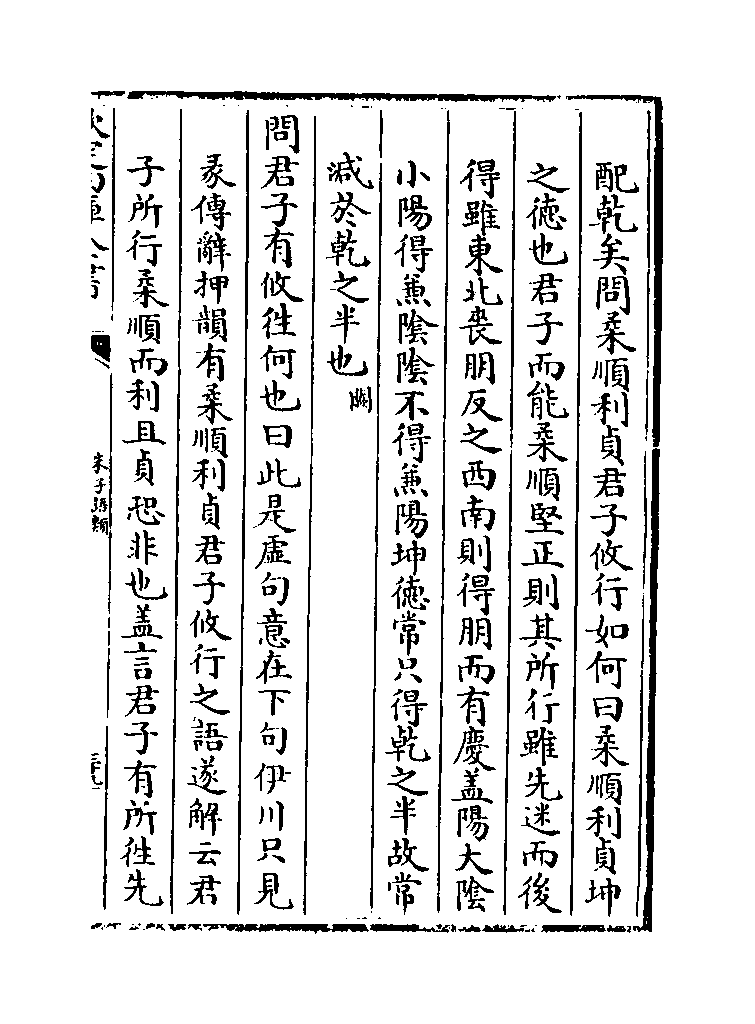 配乾矣問柔順利貞君子攸行如何曰柔順利貞坤
之徳也君子而能柔順堅正則其所行雖先迷而後
得雖東北喪朋反之西南則得朋而有慶盖陽大陰
小陽得兼陰陰不得兼陽坤徳常只得乾之半故常
減於乾之半也闕
問君子有攸徃何也曰此是虛句意在下句伊川只見
彖傳辭押韻有柔順利貞君子攸行之語遂解云君
子所行柔順而利且貞恐非也盖言君子有所徃先
欽定四庫全書
朱子語類